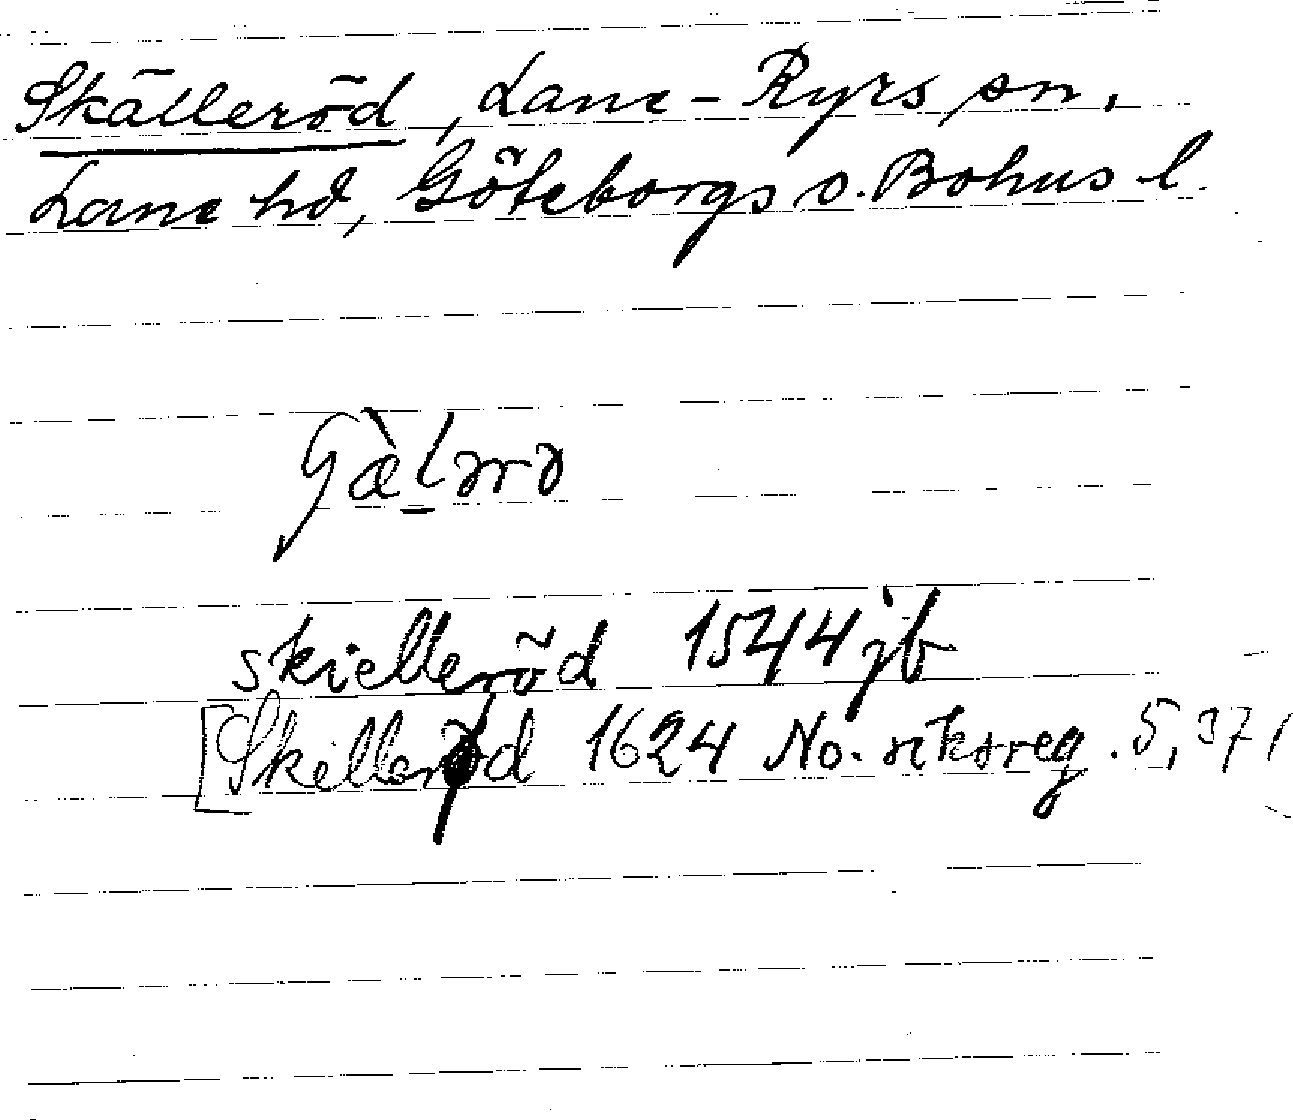 Skälleröd, Lane-Ryrs sn,
Lane hd, Göteborgs o. Bohus l.
skielleröd 1544 jb
[Skellerød 1624 No. riksreg. 5, 371